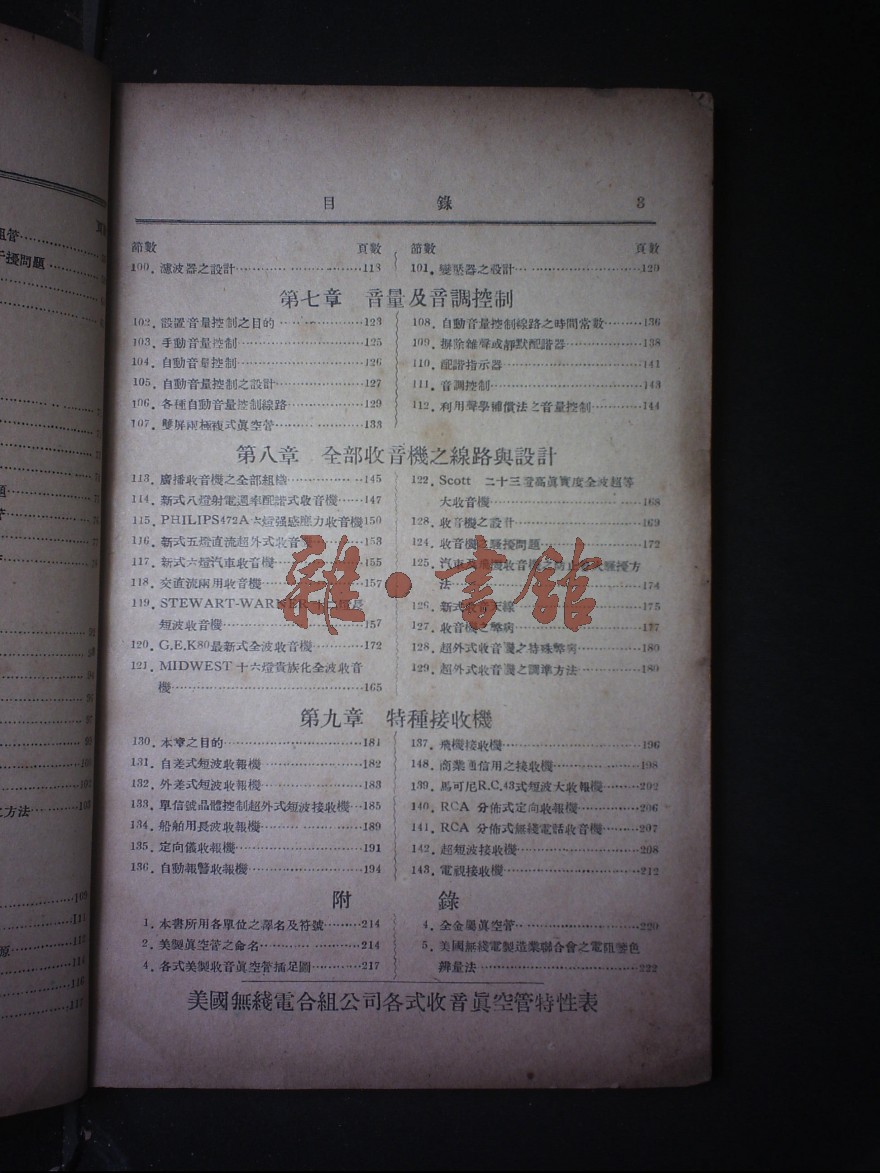 目錄 3
節數 頁數
100. 濾波器之設計 113
節數 頁數
101. 變壓器之設計 120
第七章 音量及音調控制
102. 設置音量控制之目的 123
103. 手動音量控制 125
104. 自動音量控制 126
105. 自動音量控制之設計 127
106. 各種自動音量控制線路 129
107. 雙屏兩極複式眞空管 133
108. 自動音量控制線路之時間常數 136
109. 摒除雜聲或靜默配諧器 138
110. 配諧指示器 141
111. 音調控制 143
112. 利用聲學補償法之音量控制 144
第八章 全部收音機之線路與設計
113. 廣播收音機之全部組織 145
114. 新式八燈射電週率配諧式收音機 147
115. PHILIPS472A六燈强感應力收音機 150
116. 新式五燈直流超外式收音機 153
117. 新式六燈汽車收音機 155
118. 交直流兩用收音機 157
119. STEWART-WARNER 長
短波收音機 157
120. G.E.K80最新式全波收音機 172
121. MIDWEST 十六燈貴族化全波收音
機 165
122. Scott 二十三燈高眞實度全波超等
大收音機 168
128. 收音機之設計 169
124. 收音機之騷擾問題 172
125. 汽車及飛機收音機之防止 騷擾方
法 174
126. 新式收音天線 175
127. 收音機之弊病 177
128. 超外式收音機之特殊弊病 180
129. 超外式收音機之調準方法 180
第九章 特種接收機
130. 本章之目的 181
131. 自差式短波收報機 182
132. 外差式短波收報機 183
133. 單信號晶體控制超外式短波接收機 185
134. 船舶用長波收報機 189
135. 定向儀收報機 191
136. 自動報警收報機 194
137. 飛機接收機 196
148. 商業通信用之接收機 198
139. 馬可尼R.C.43式短波大收報機 202
140. RCA 分佈式定向收報機 206
141. RCA 分佈式無綫電話收音機 207
142. 超短波接收機 208
143. 電視接收機 212
附錄
1. 本書所用各單位之譯名及符號 214
2. 美製眞空管之命名 214
4. 各式美製收音眞空管插足圖 217
4. 全金屬眞空管 220
5. 美國無綫電製造業聯合會之電阻變色
辨量法 222
美國無綫電合組公司各式收音眞空管特性表
雜·書館